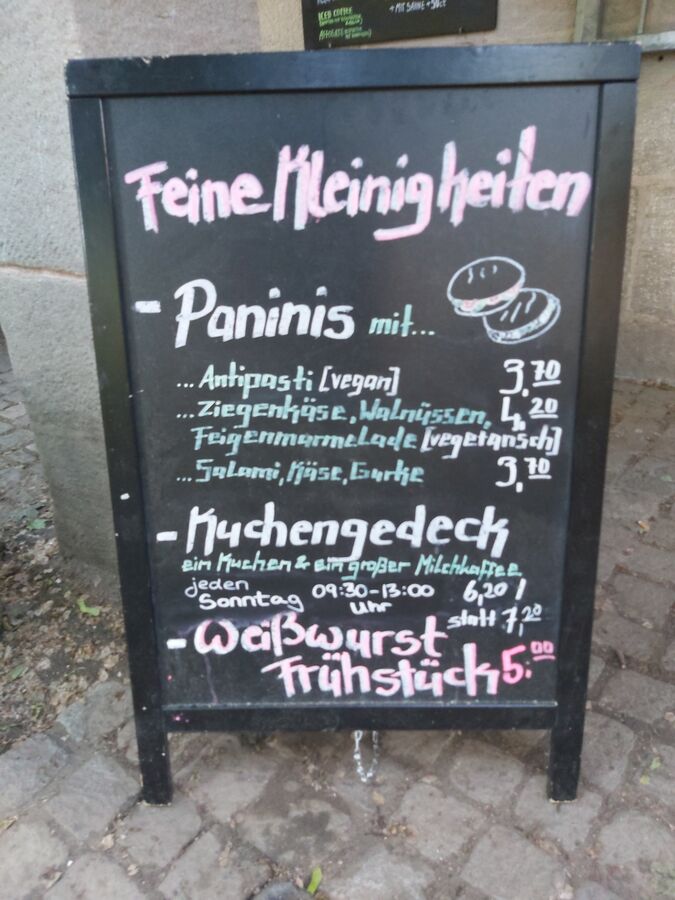 ICED COFFEE
+ MIT SAHNE + 50 CT
AFFOGATO
Feine Kleinigkeiten
- Paninis mit...
...Antipasti [vegan] 3,70
...Ziegenkäse, Walnüssen, 4,20
Feigenmarmelade [vegetarisch]
...Salami, Käse, Gurke 3,70
- Kuchengedeck
ein Kuchen & ein großer Milchkaffee
6,20 /
statt 7,20
jeden Sonntag 09:30-13:00 Uhr
- Weißwurst
Frühstück 5.00